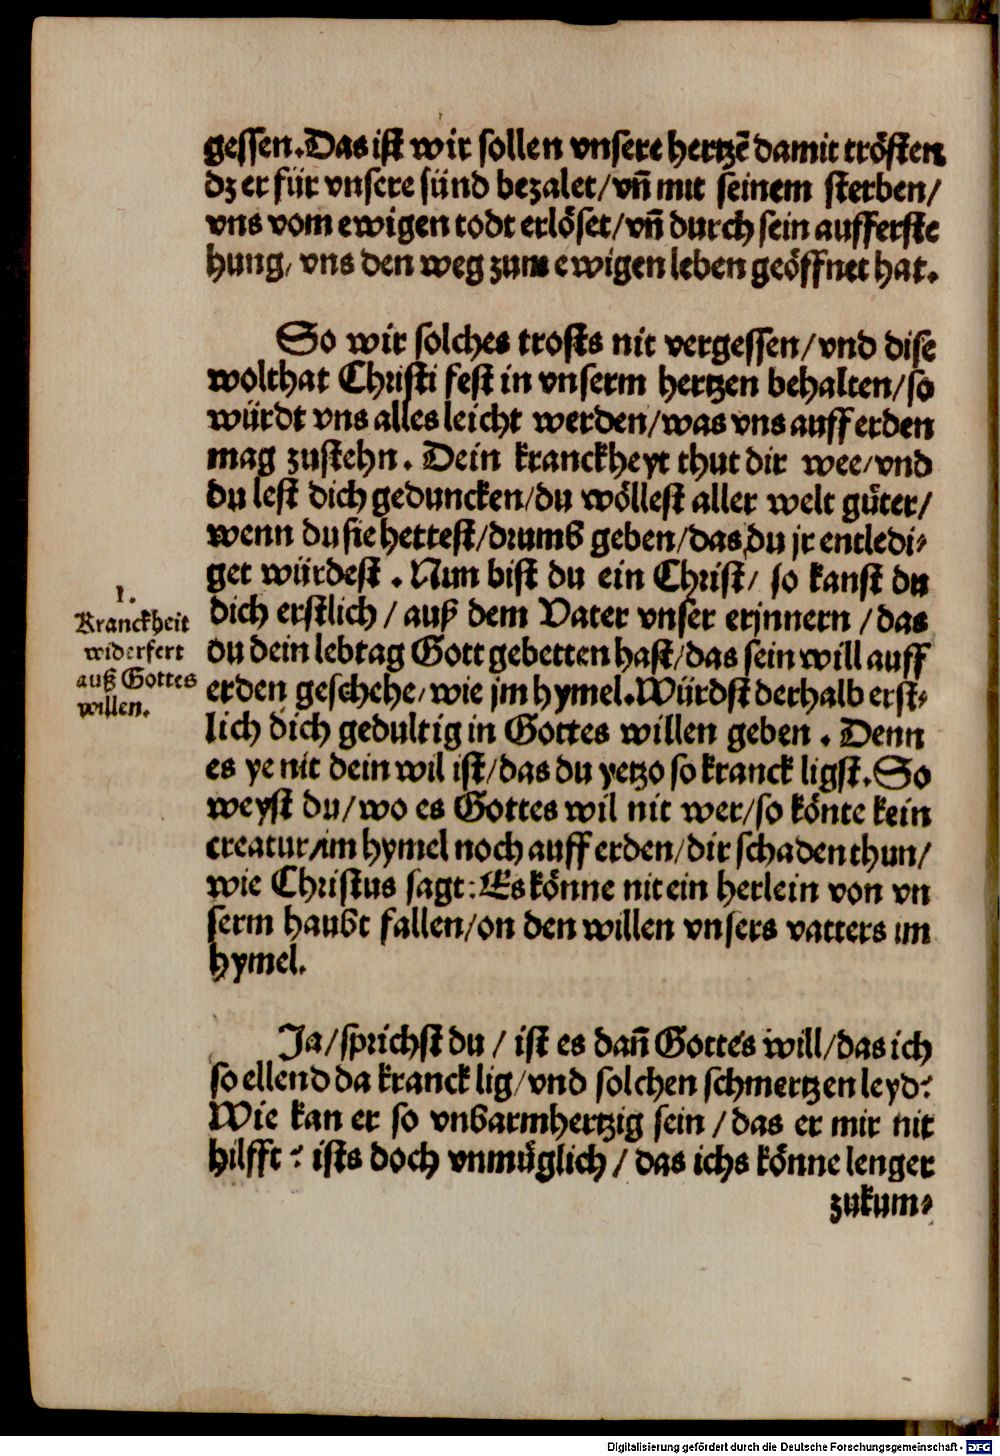 gessen. Das ist wir sollen vnsere hertzē damit trösten
dz er für vnsere sünd bezalet/ vn̄ mit seinem sterben/
vns vom ewigen todt erlöset/ vn̄ durch sein aufferste
hung/ vns den weg zum ewigen leben geöffnet hat.
So wir solches trosts nit vergessen/ vnd dise
wolthat Christi fest in vnserm hertzen behalten/ so
würdt vns alles leicht werden/ was vns auff erden
mag zustehn. Dein kranckheyt thut dir wee/ vnd
du lest dich geduncken/ du wöllest aller welt güter/
wenn du sie hettest/ drumb geben/ das du jr entledi-
get würdest. Nun bist du ein Christ/ so kanst du
dich erstlich/ auß dem Vater vnser erjnnern/ das
du dein lebtag Gott gebetten hast/ das sein will auff
erden geschehe/ wie jm hymel. Würdst derhalb erst-
lich dich gedultig in Gottes willen geben. Denn
es ye nit dein wil ist/ das du yetzo so kranck ligst. So
weyst du/ wo es Gottes wil nit wer/ so könte kein
creatur/ im hymel noch auff erden/ dir schaden thun/
wie Christus sagt: Es könne nit ein herlein von vn
serm haubt fallen/ on den willen vnsers vatters im
hymel.
1.
Kranckheit
widerfert
auß Gottes
willen.
Ja/ sprichst du/ ist es dan̄ Gottes will/ das ich
so ellend da kranck lig/ vnd solchen schmertzen leyd?
Wie kan er so vnbarmhertzig sein/ das er mir nit
hilfft? ists doch vnmüglich/ das ichs könne lenger
zukum-
Digitalisierung gefördert durch die Deutsche Forschungsgemeinschaft - DFG